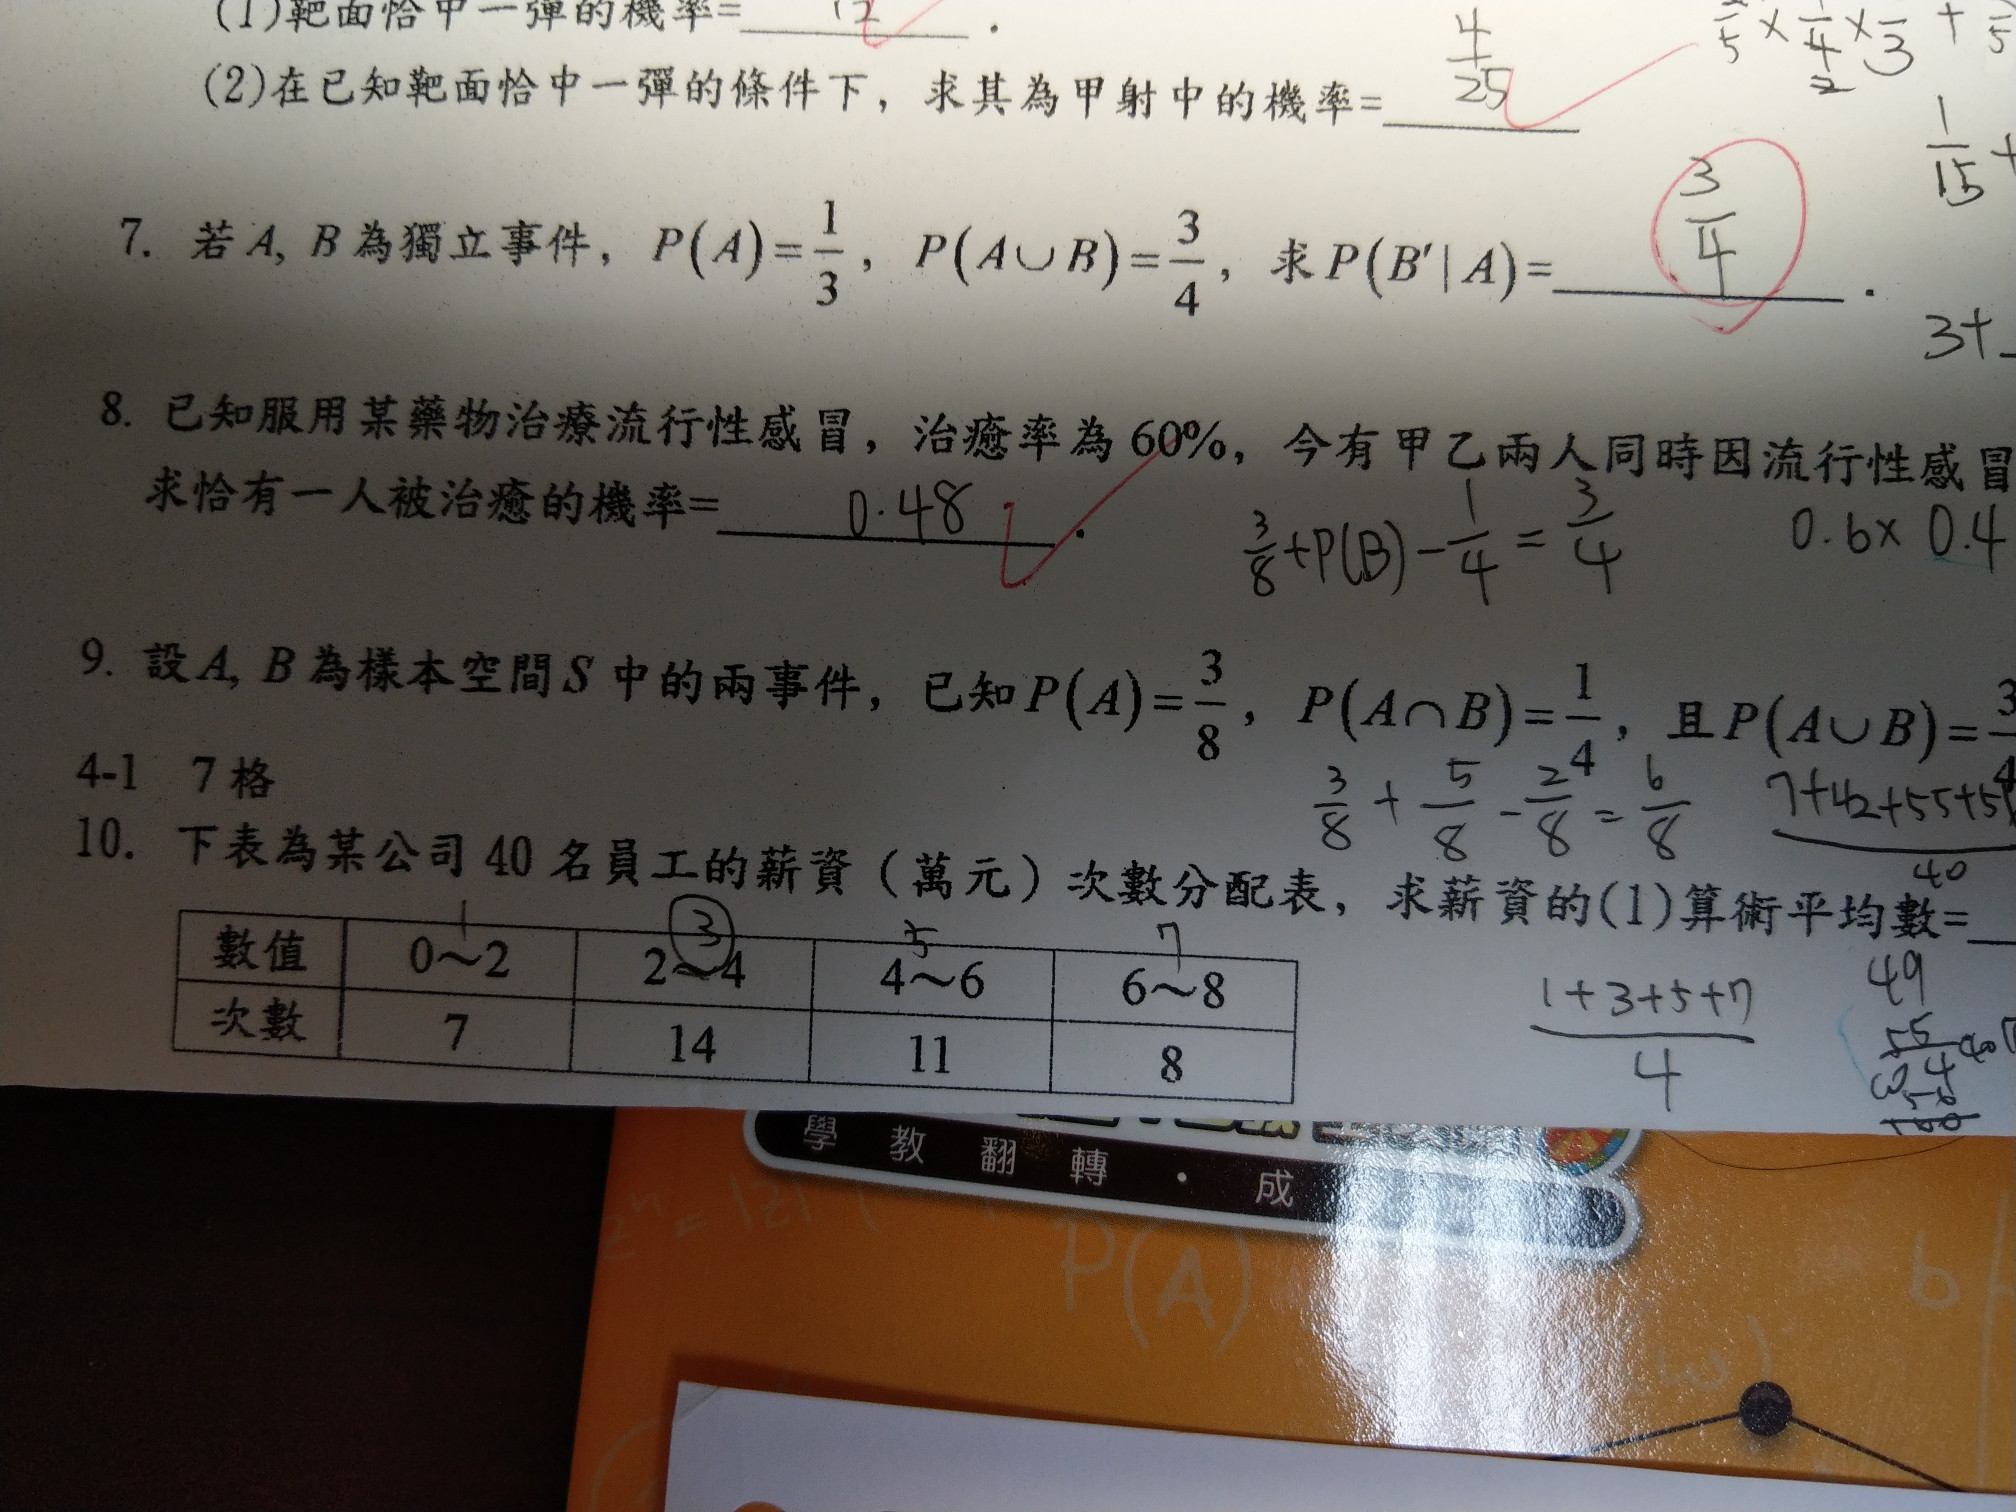 (1)靶面恰中一彈的機率= 12 .
(2)在已知靶面恰中一彈的條件下，求其為甲射中的機率= 4/25
7. 若A, B為獨立事件，P(A)=1/3，P(A∪B)=3/4，求P(B′|A)= 3/4 .
1/15 +
3+
8. 已知服用某藥物治療流行性感冒，治癒率為60%，今有甲乙兩人同時因流行性感冒
求恰有一人被治癒的機率= 0.48 .
3/8+P(B)-1/4=3/4
0.6×0.4
9. 設A, B為樣本空間S中的兩事件，已知P(A)=3/8，P(A∩B)=1/4，且P(A∪B)=3/4
3/8+5/8-2/8=6/8
7+42+55+5
40
4-1 7格
10. 下表為某公司40名員工的薪資（萬元）次數分配表，求薪資的(1)算術平均數=
1 3 5 7
數值 0～2 2～4 4～6 6～8
次數 7 14 11 8
1+3+5+7
4
49
學教翻轉・成
P(A)
b